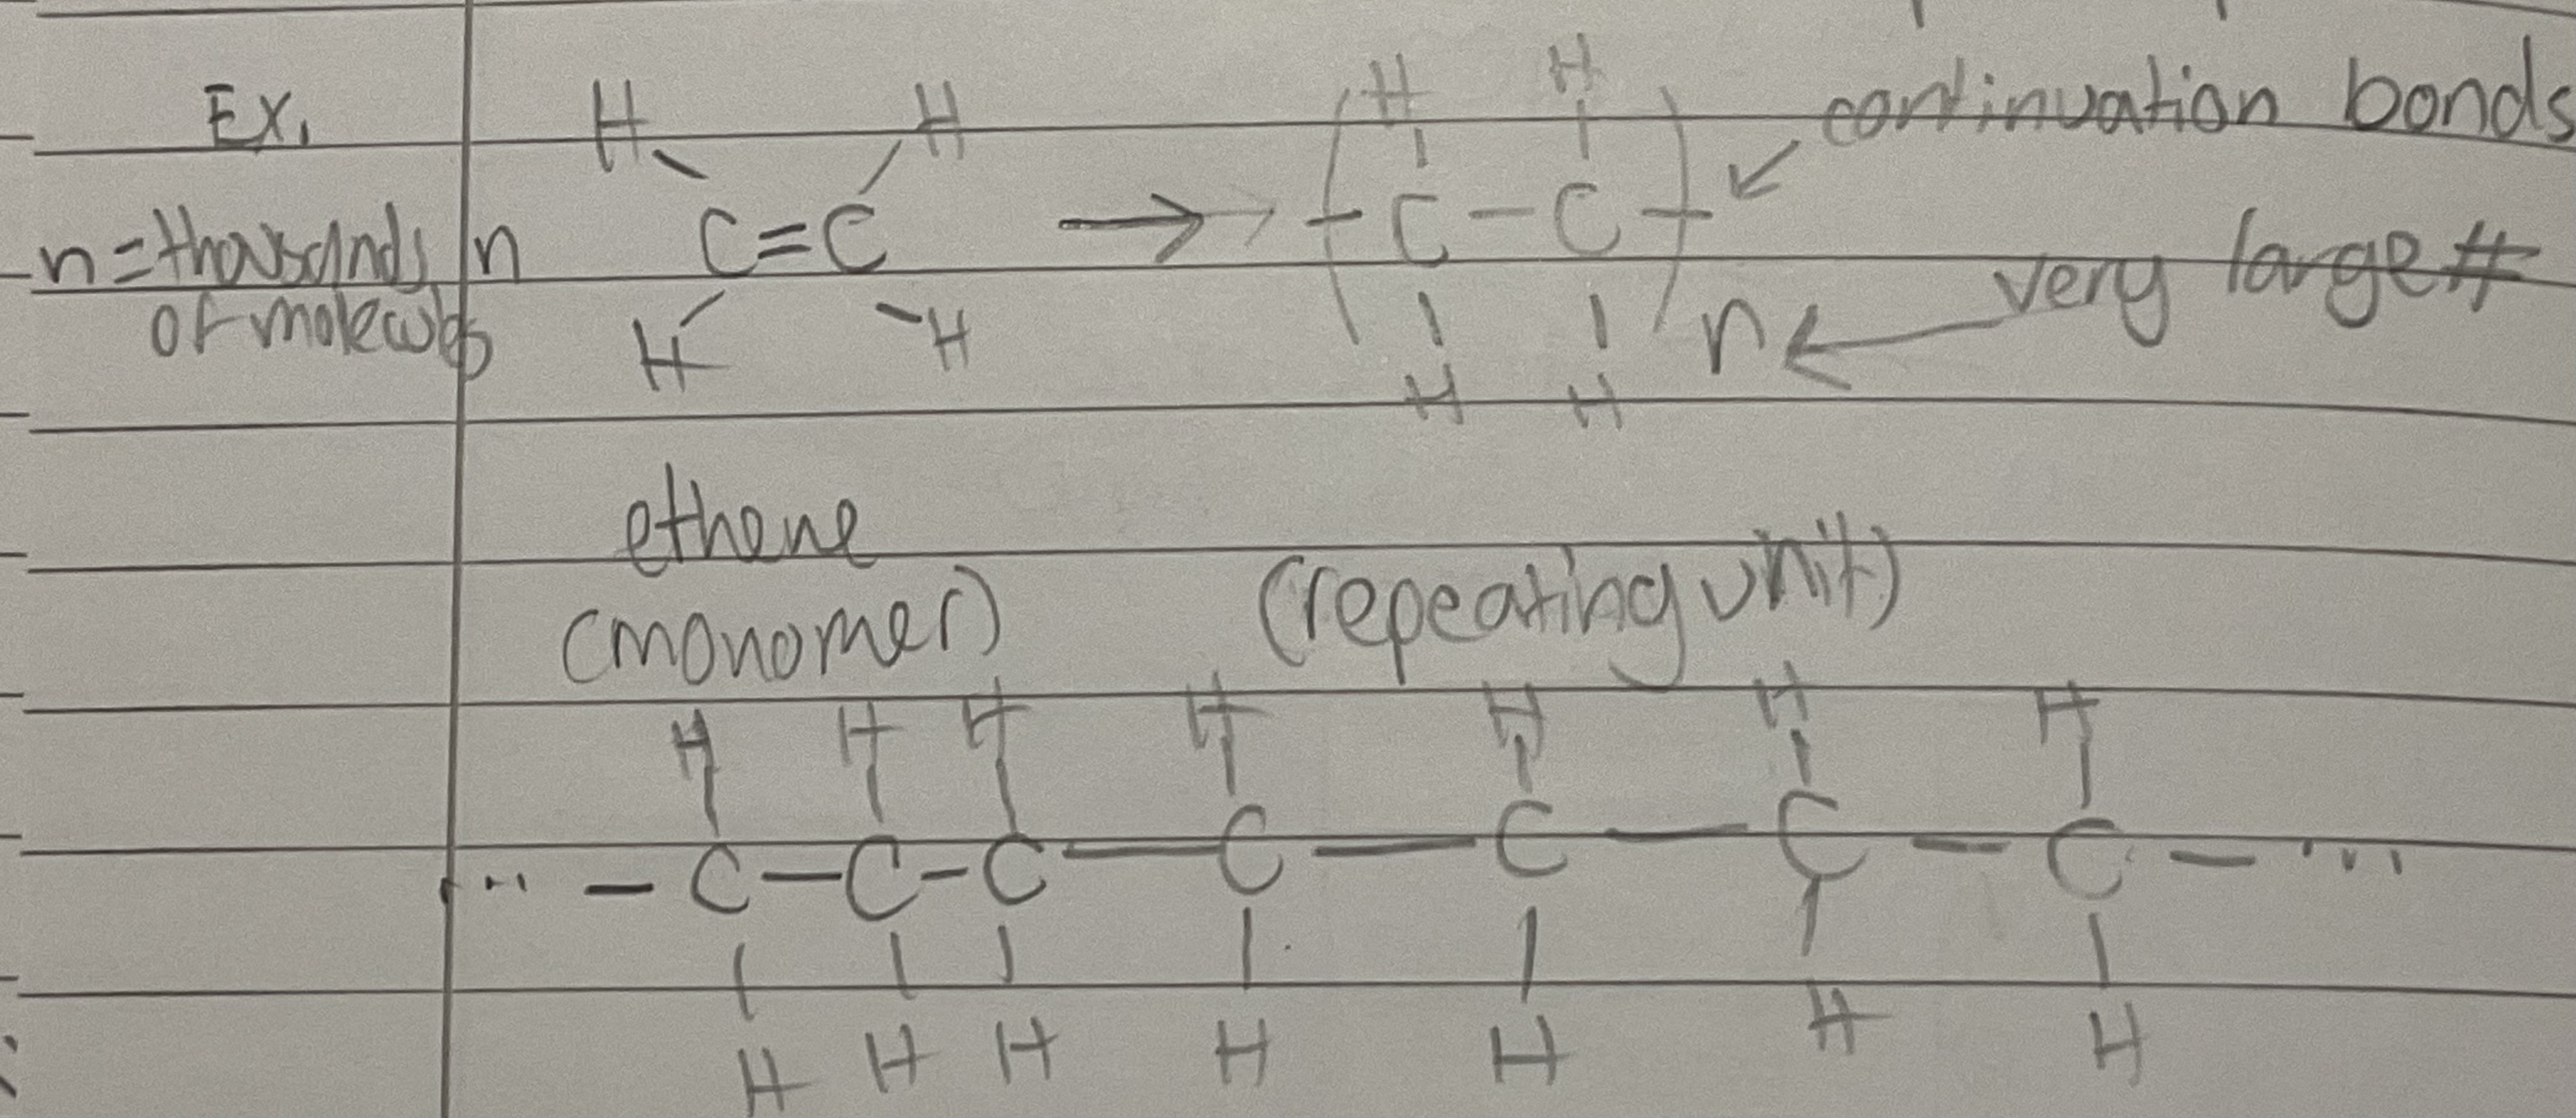 Ex.
n = thousands of molecules
n
H H
C=C
H H
→
H H
(-C-C-)
H H
n
continuation bonds
very large #
ethene
(monomer)
(repeating unit)
H H H H H H H
... - C - C - C - C - C - C - C - ...
H H H H H H H